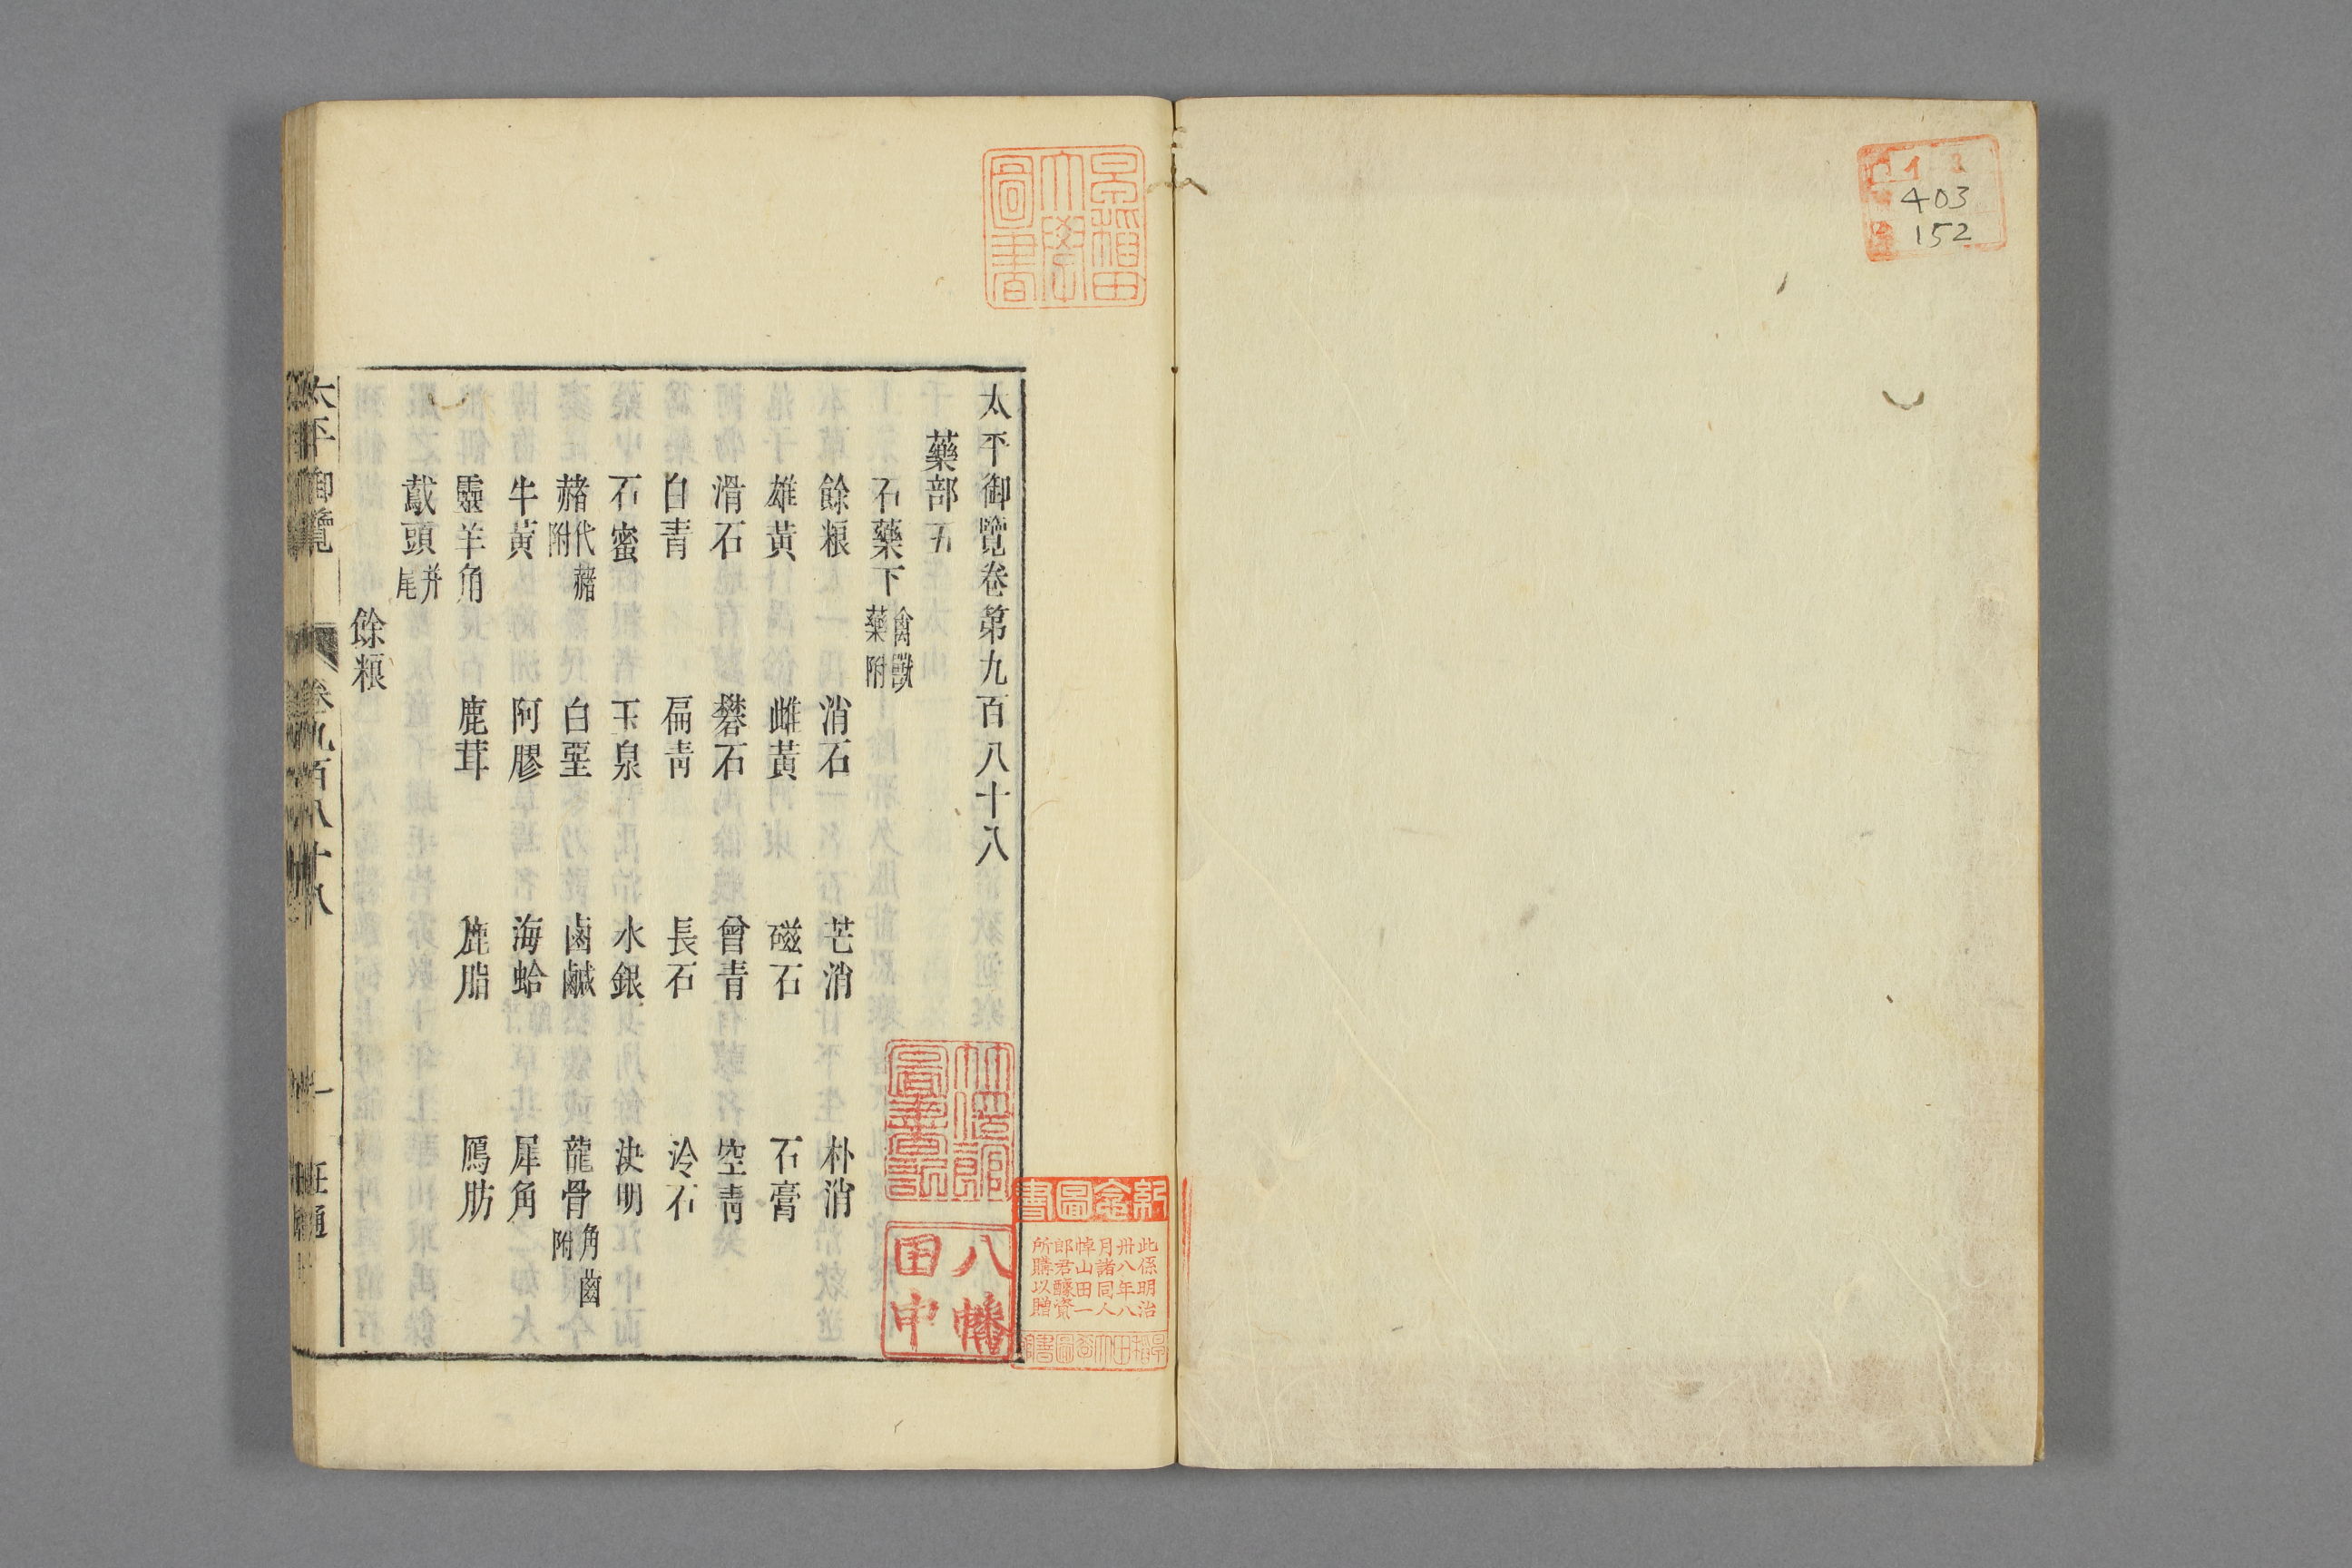 403
152
早稲田大學圖書
太平御覽卷第九百八十八
藥部五
石藥下禽獸藥附
餘粮 消石 芒消 朴消
雄黃 雌黃 磁石 石膏
滑石 礬石 曾青 空靑
白青 扁靑 長石 泠石
石蜜 玉泉 水銀 決明
赭代赭附 白堊 鹵鹹 龍骨角齒附
牛黃 阿膠 海蛤 犀角
靈羊角 鹿茸 麂脂 鴈肪
蔵頭并尾
餘粮
太平御覽 卷九百八十八 一
八幡田中
此係明治
卅八年八
月諸同人
悼山田一
郎君醵資
所購以贈